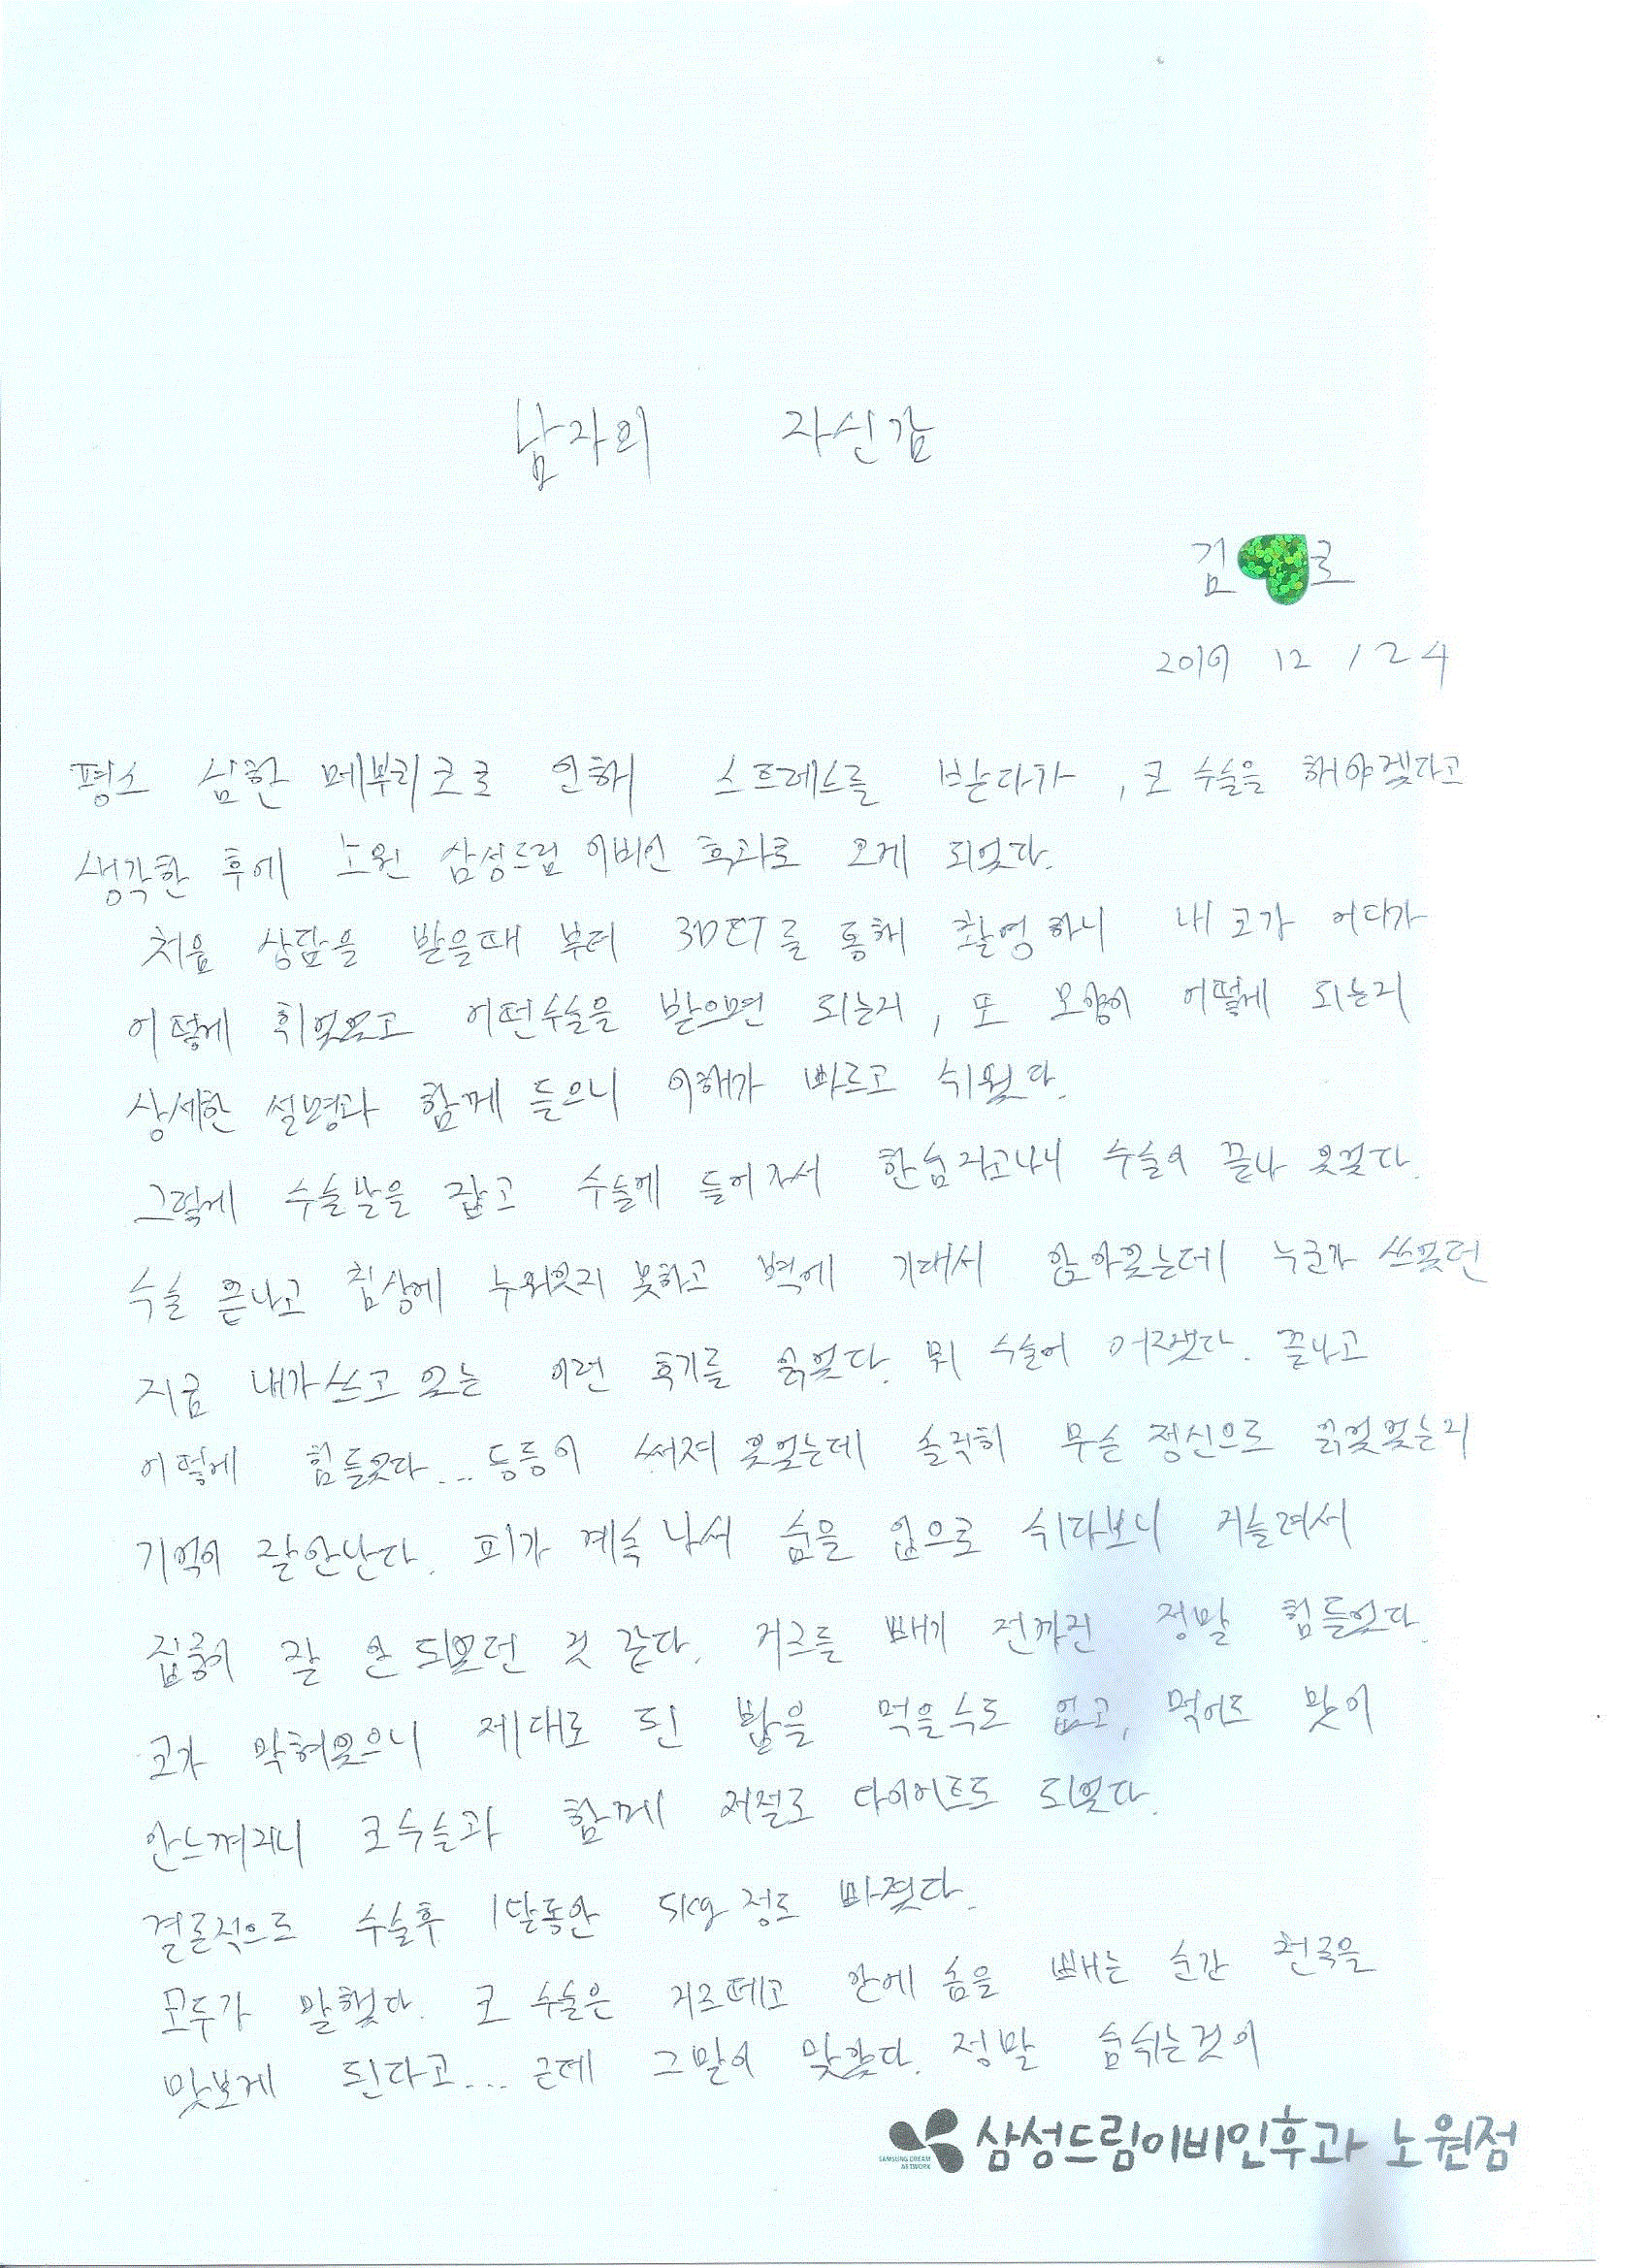 남자의 자신감
김 로
2019 12 / 24
평소 심한 메부리코로 인해 스트레스를 받다가, 코 수술을 해야겠다고
생각한 후에 노원 삼성드림 이비인 후과로 오게 되었다.
처음 상담을 받을때 부터 3DCT를 통해 촬영하니 내 코가 어디가
어떻게 휘었으고 어떤수술을 받으면 되는지, 또 모양이 어떻게 되는지
상세한 설명과 함께 들으니 이해가 빠르고 쉬웠다.
그렇게 수술날을 잡고 수술에 들어가서 한숨자고나니 수술이 끝나 있었다.
수술 끝나고 침상에 누워있지 못하고 벽에 기대서 앉아있는데 누군가 쓰있던
지금 내가쓰고 있는 이런 후기를 읽었다. 뭐 수술이 어쨌다. 끝나고
어떻게 힘들었다... 등등이 써져 있었는데 솔직히 무슨 정신으로 읽었었는지
기억이 잘안난다. 피가 계속 나서 숨을 입으로 쉬다보니 거슬려서
집중이 잘 안 되었던 것 같다. 거즈를 빼기 전까진 정말 힘들었다.
코가 막혀있으니 제대로 된 밥을 먹을수도 없고, 먹어도 맛이
안느껴지니 코수술과 함께 저절로 다이어트도 되었다.
결론적으로 수술후 1달동안 5kg 정도 빠졌다.
모두가 말했다. 코 수술은 거즈떼고 안에 솜을 빼는 순간 천국을
맛보게 된다고... 근데 그말이 맞았다. 정말 숨쉬는것이
SAMSUNG DREAM
NETWORK
삼성드림이비인후과 노원점